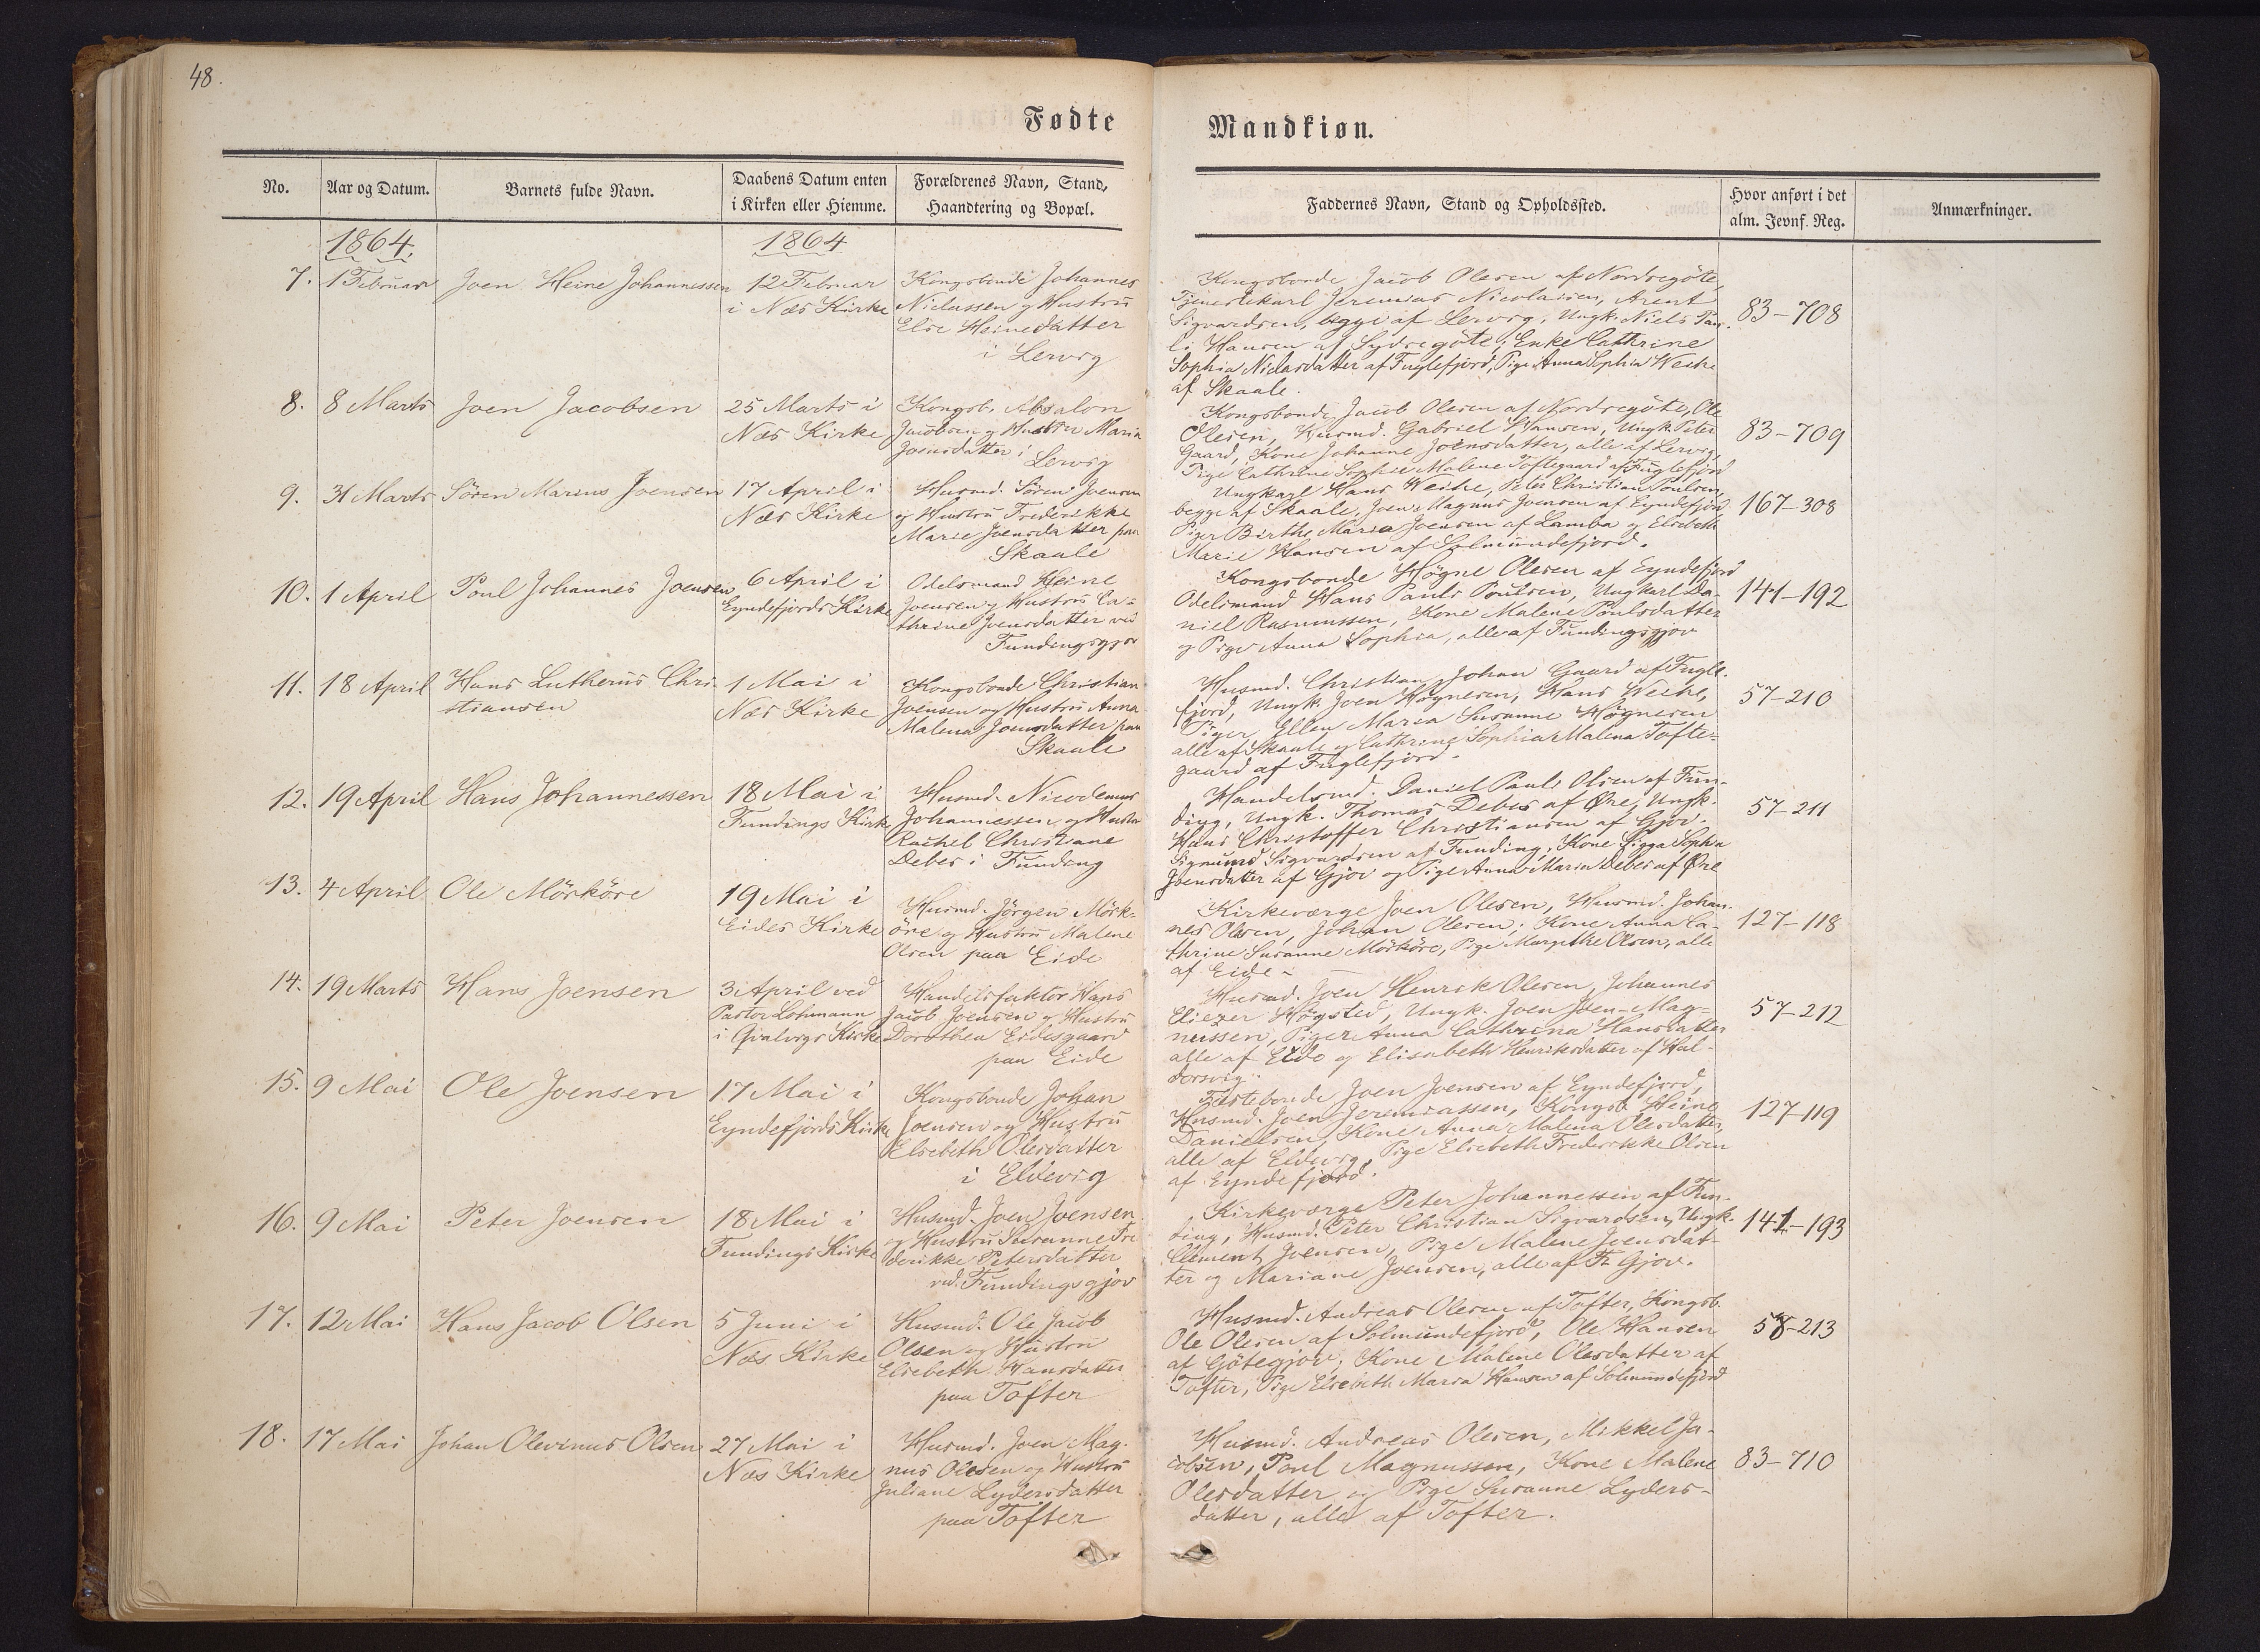 48.
Fødte
Mandkiøn.
No.
Aar og Datum.
Barnets fulde Navn.
Daabens Datum enten
i Kirken eller Hiemme.
Forældrenes Navn, Stand,
Haandtering og Bopæl.
Faddernes Navn, Stand og Opholdssted.
Hvor anført i det
alm. Jevnf. Reg.
Anmærkninger.
1864.
1864
7.
1 Februar
Joen Heine Johannessen
12 Februar
i Næs Kirke
Kongsbonde Johannes
Niclassen og Hustru
Else Heinedatter
i Lervig
Kongsbonde Jacob Olesen af Nordregöte,
Tjenestekarl Jeremias Nicolaisen, Arent
Sigvardsen, begge af Lervig, Ungk. Niels Pau-
li Hansen af Sydregöte, Enke Cathrine
Sophia Niclasdatter af Fuglefjord, Pige Anna Sophia Weihe
af Skaale.
83-708
8.
8 Marts
Joen Jacobsen
25 Marts i
Næs Kirke
Kongsb. Absalon
Jacobsen og Hustru Maria
Joensdatter i
Lervig
Kongsbonde Jacob Olesen af Nordregöte, Ole
Olesen, Husmd. Gabriel Hansen, Ungk. Peter
Gaard, Kone Johanne Joensdatter, alle af Lervig,
Pige Cathrine Sophie Malene Toftegaard af Fuglefjord
83-709
9.
31 Marts
Sören Marius Joensen
17 April i
Næs Kirke
Husmd. Sören Joensen
og Hustru Frederikke
Marie Joensdatter paa
Skaale
Ungkarl Hans Weihe, Peter Christian Poulsen,
begge af Skaale, Joen Magnus Joensen af Eyndefjord
Piger Birthe Maria Joensen af Lamba og Elsebeth
Marie Hansen af Solmundefjord.
167-308
10.
1 April
Poul Johannes Joensen
6 April i
Eyndefjords Kirke
Odelsmand Heine
Joensen og Hustru Ca-
thrine Joensdatter ved
Fundingsgjov
Kongsbonde Högne Olesen af Eyndefjord
Odelsmand Hans Pauli Poulsen, Ungkarl Da-
niel Rasmussen, Kone Malene Poulsdatter
og Pige Anna Sophia, alle af Fundingsgjov
141-192
11.
18 April
Hans Lutherus Chri-
stiansen
1 Mai i
Næs Kirke
Kongsbonde Christian
Joensen og Hustru Anna
Malena Joensdatter paa
Skaale
Husmd. Christian Johan Gaard af Fugle-
fjord, Ungk. Joen Högnesen, Hans Weihe,
Piger Ellen Maria Susanne Högnesen
alle af Skaale og Cathrine Sophia Malena Tofte-
gaard af Fuglefjord.
57-210
12.
19 April
Hans Johannessen
18 Mai i
Fundings Kirke
Husmd. Nicodemus
Johannessen og Hustru
Rachel Christiane
Debes i Funding
Handelsmd. Daniel Pauli Olsen af Fun-
ding, Ungk. Thomas Debes af Øre, Ungk.
Hans Christoffer Christiansen af Gjov.
Sigmund Sigvardsen af Funding, Kone Sigga Sophia
Joensdatter af Gjov og Pige Anna Maria Debes af Øre
57-211
13.
4 April
Ole Mörköre
19 Mai i
Eides Kirke
Husmd. Jörgen Mörk-
öre og Hustru Malene
Olsen paa Eide
Kirkeværge Joen Olesen, Husmd. Johan-
nes Olsen, Johan Olesen, Kone Anna Ca-
thrine Susanne Mörköre, Pige Margrethe Olsen, alle
af Eide
127-118
14.
19 Marts
Hans Joensen
3 April ved
Pastor Lohmann
i Qvalvigs Kirke
Handelsfaktor Hans
Jacob Joensen og Hustru
Dorothea Eidesgaard
paa Eide
Husmd. Joen Henrik Olesen, Johannes
Eliezer Högsted, Ungk. Joen Joen-Mag-
nussen, Piger Anna Cathrina Hansdatter
alle af Eide og Elisabeth Henriksdatter af Hal-
dorsvig.
57-212
15.
9 Mai
Ole Joensen
17 Mai i
Eyndefjords Kirke
Kongsbonde Johan
Joensen og Hustru
Elsebeth Olesdatter
i Eldevig
Fæstebonde Joen Joensen af Eyndefjord,
Husmd. Joen Jeremiassen, Kongsb. Heine
Danielsen, Kone Anna Malena Olesdatter,
alle af Eldevig, Pige Elsebeth Frederikke Olsen
af Eyndefjord.
127-119
16.
9 Mai
Peter Joensen
18 Mai i
Fundings Kirke
Husmd. Joen Joensen
og Hustru Susanne Fre
derikke Petersdatter
ved Fundingsgjov
Kirkeværge Peter Johannessen af Fun-
ding, Husmd. Peter Christian Sigvardsen, Ungk.
Clement Joensen, Pige Malene Joensdat-
ter og Mariane Joensen, alle af F. Gjov.
141-193
17.
12 Mai
Hans Jacob Olsen
5 Juni i
Næs Kirke
Husmd. Ole Jacob
Olsen og Hustru
Elsebeth Hansdatter
paa Tofter
Husmd. Andreas Olesen af Tofter, Kongsb.
Ole Olesen af Solmundefjord, Ole Hansen
af Götegjov, Kone Malene Olesdatter af
Tofter, Pige Elsebeth Maria Hansen af Solmundefjord
58-213
18.
17 Mai
Johan Olevinus Olsen
27 Mai i
Næs Kirke
Husmd. Joen Mag-
nus Olesen og Hustru
Juliane Lydersdatter
paa Tofter
Husmd. Andreas Olesen, Mikkel Ja-
cobsen, Poul Magnussen, Kone Malene
Olesdatter og Pige Susanne Lyders-
datter, alle af Tofter.
83-710